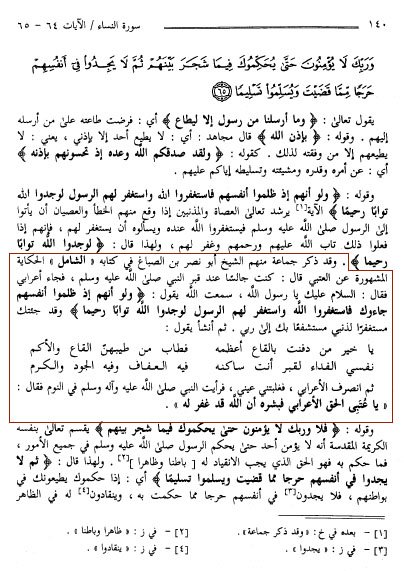 ١٤٠ سورة النساء / الآيات ٦٤ – ٦٥
وَرَبِّكَ لَا يُؤْمِنُونَ حَتَّىٰ يُحَكِّمُوكَ فِيمَا شَجَرَ بَيْنَهُمْ ثُمَّ لَا يَجِدُوا فِي أَنفُسِهِمْ
حَرَجًا مِمَّا قَضَيْتَ وَيُسَلِّمُوا تَسْلِيمًا ﴿٦٥﴾
يقول تعالى : ﴿ وما أرسلنا من رسول إلا ليطاع ﴾ أي : فرضت طاعته على من أرسله
إليهم . وقوله : ﴿ بإذن الله ﴾ قال مجاهد : أي : لا يطيع أحد إلا بإذني ، يعني : لا
يطيعهم إلا من وفقته لذلك . كقوله : ﴿ ولقد صدقكم الله وعده إذ تحسونهم بإذنه ﴾
أي : عن أمره وقدره ومشيئته وتسليطه إياكم عليهم .
وقوله : ﴿ ولو أنهم إذ ظلموا أنفسهم فاستغفروا الله واستغفر لهم الرسول لوجدوا الله
توابًا رحيمًا ﴾ الآية[١] يرشد تعالى العصاة والمذنبين إذا وقع منهم الخطأ والعصيان أن يأتوا
إلى الرسول ، صلى الله عليه وسلم ، فيستغفروا الله عنده ويسألوه أن يستغفر لهم ، فإنهم إذا
فعلوا ذلك تاب الله عليهم ورحمهم وغفر لهم ، ولهذا قال : ﴿ لوجدوا الله توابًا
رحيمًا ﴾ . وقد ذكر جماعة منهم الشيخ أبو نصر بن الصباغ في كتابه « الشامل » الحكاية
المشهورة عن العتبي قال : كنت جالسًا عند قبر النبي صلى الله عليه وسلم ، فجاء أعرابي
فقال : السلام عليك يا رسول الله ، سمعت الله يقول : ﴿ ولو أنهم إذ ظلموا أنفسهم
جاءوك فاستغفروا الله واستغفر لهم الرسول لوجدوا الله توابًا رحيما ﴾ وقد جئتك
مستغفرًا لذنبي مستشفعًا بك إلى ربي . ثم أنشأ يقول :
يا خير من دفنت بالقاع أعظمه فطاب من طيبهنّ القاع والأكم
نفسي الفداء لقبر أنت ساكنه فيه العفاف وفيه الجود والكرم
ثم انصرف الأعرابي ، فغلبتني عيني ، فرأيت النبي صلى الله عليه وآله وسلم في النوم فقال :
« يا عُتْبي الحق الأعرابي فبشره أن الله قد غفر له » .
وقوله : ﴿ فلا وربك لا يؤمنون حتى يحكموك فيما شجر بينهم ﴾ يقسم تعالى بنفسه
الكريمة المقدسة أنه لا يؤمن أحد حتى يحكم الرسول صلى الله عليه وسلم في جميع الأمور ،
فما حكم به فهو الحق الذي يجب الانقياد له [ باطنا وظاهرا ][٢] . ولهذا قال : ﴿ ثم لا
يجدوا في أنفسهم حرجا مما قضيت ويسلموا تسليمًا ﴾ أي : إذا حكموك يطيعونك في
بواطنهم ، فلا يجدون[٣] في أنفسهم حرجا مما حكمت به ، وينقادون[٤] له في الظاهر
[١] – بعده في خ : « وقد ذكر جماعة » . [٢] – في ز : « ظاهرا وباطنا » .
[٣] – في ز : « يجدوا » . [٤] – في ز : « ينقادوا » .